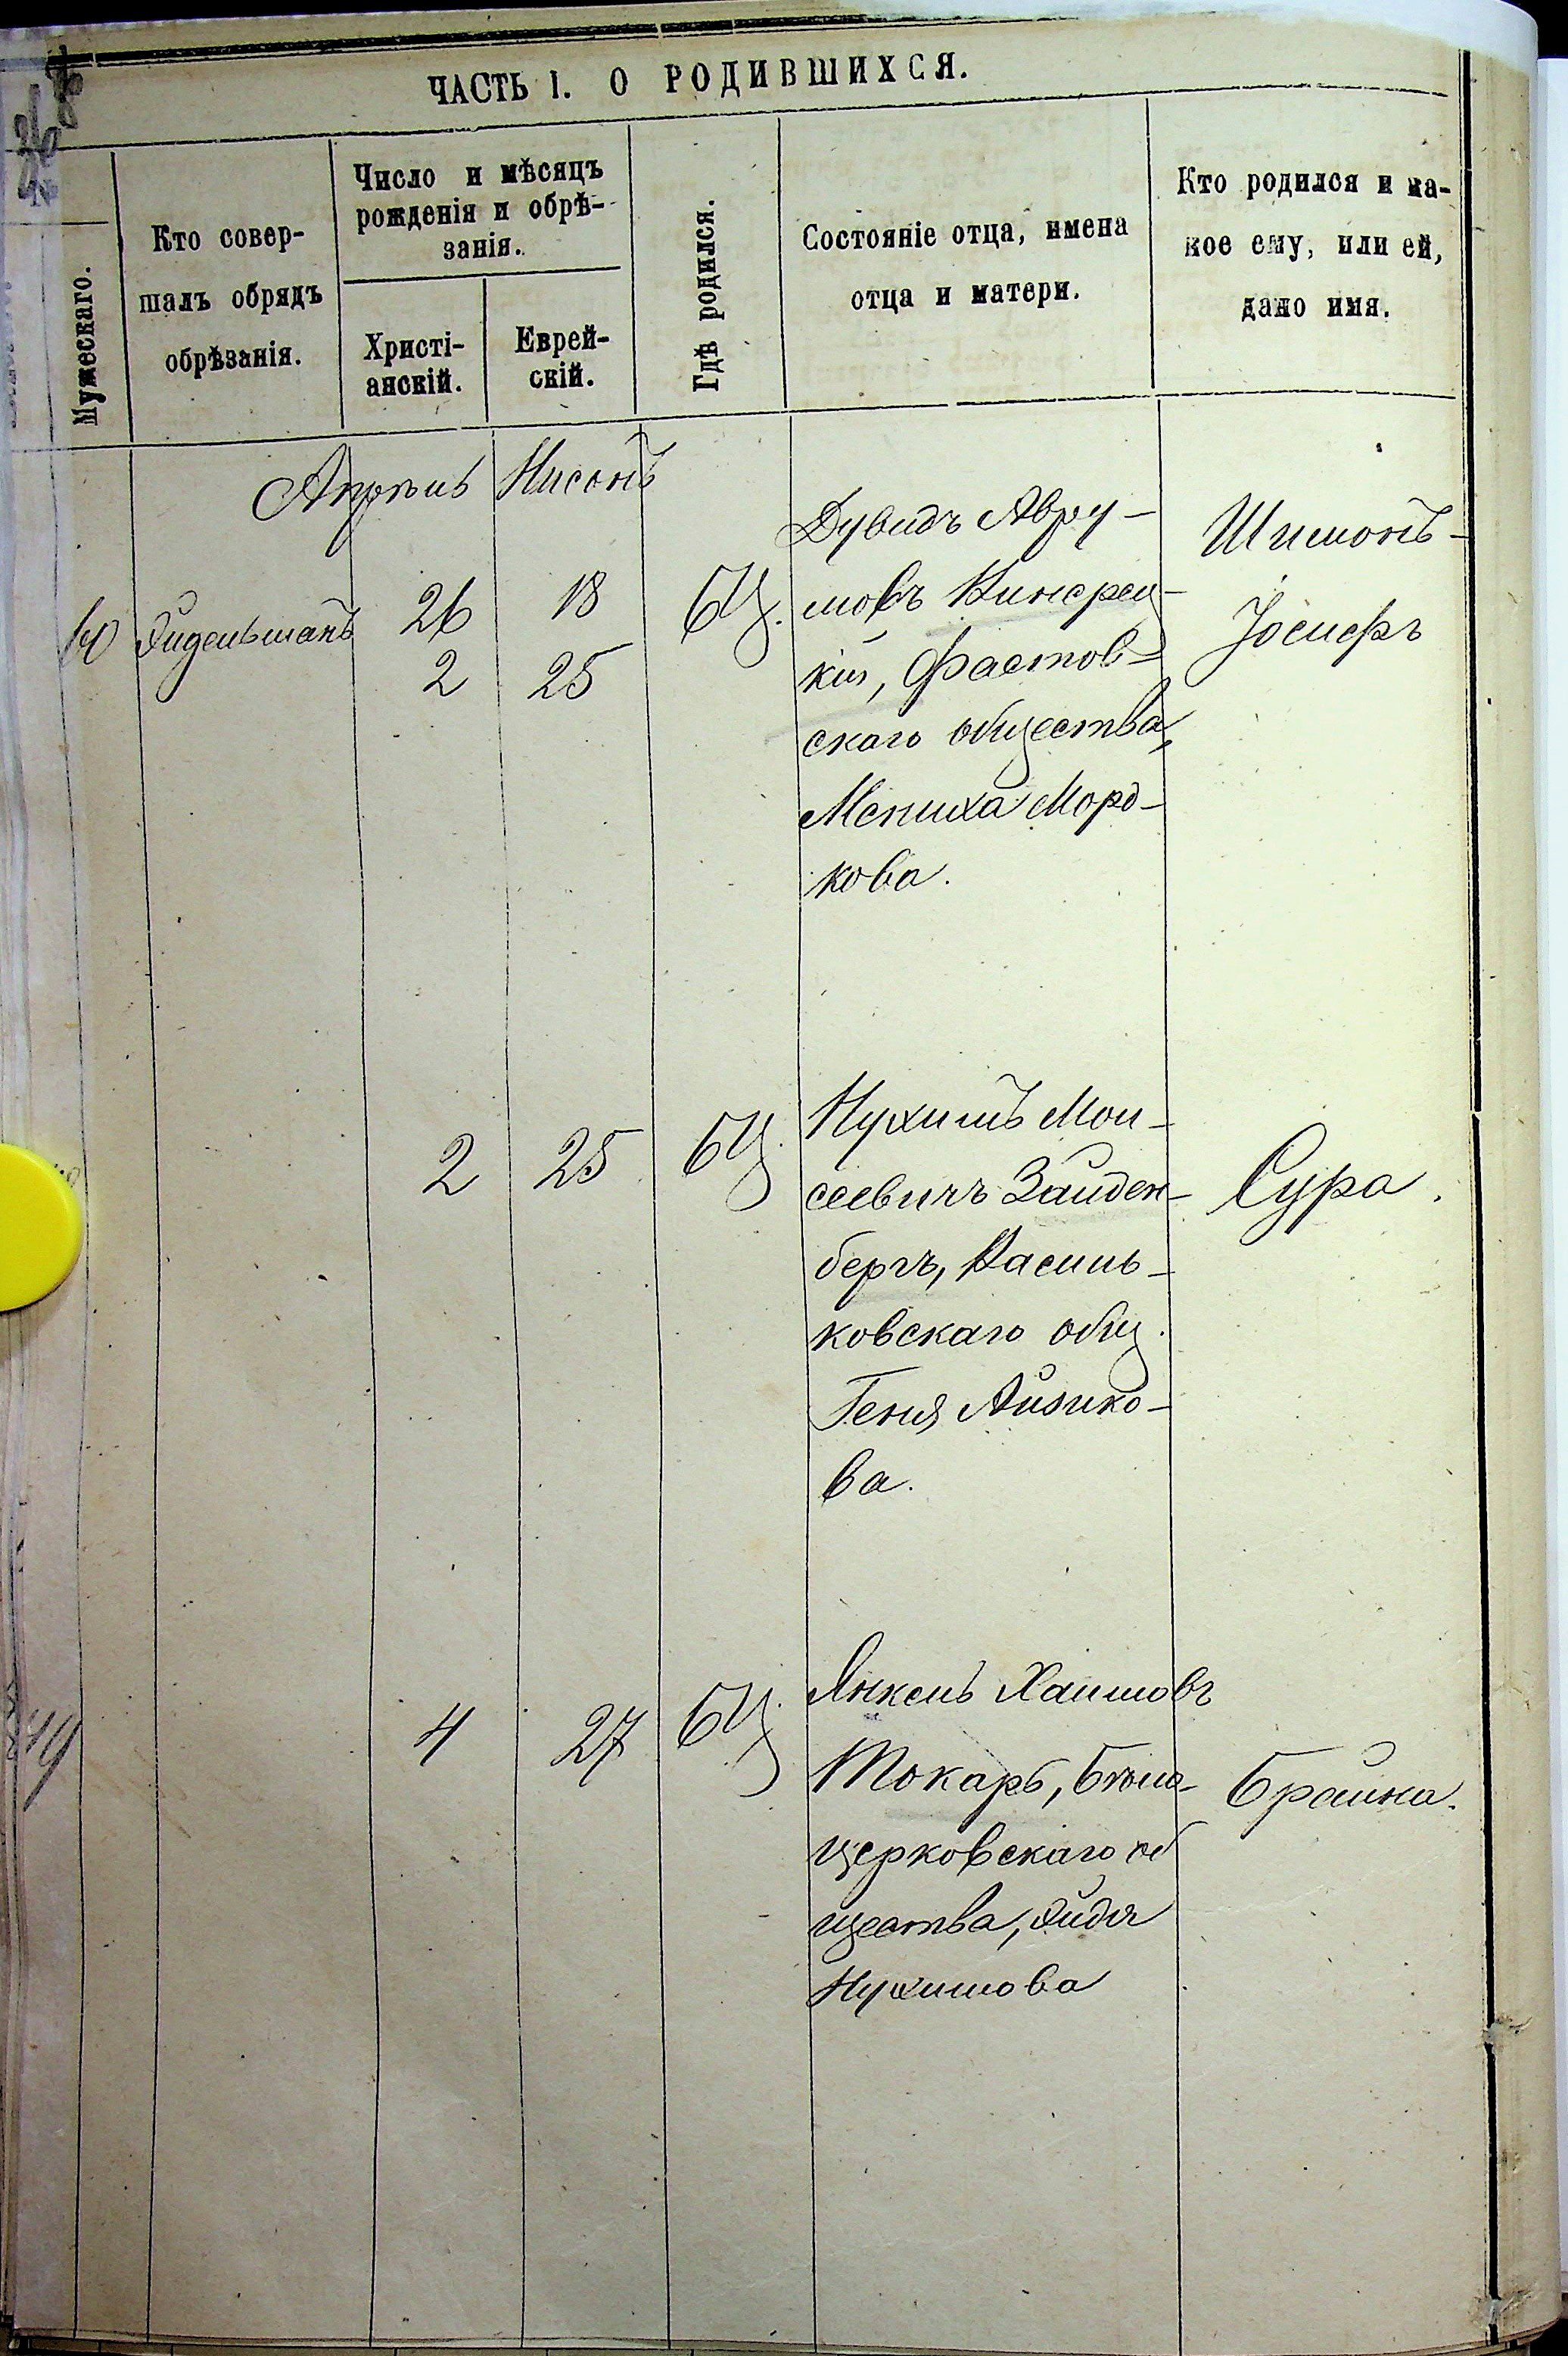 ЧАСТЬ I. О РОДИВШИХСЯ.
Мужескаго.
Кто совер-
шалъ обрядъ
обрѣзанія.
Число и мѣсяцъ
рожденія и обрѣ-
занія.
Христі-
анскій.
Еврей-
скій.
Гдѣ родился.
Состояніе отца, имена
отца и матери.
Кто родился и ка-
кое ему, или ей,
дано имя.
Апрѣль Нисонъ
Эйдельманъ 26 18 БЦ.
2 25
Дувидъ Авру-
мовъ
кій, Фастов-
скаго общества,
МенихаМорд-
кова.
Шимонъ-
Іосифъ
2 25 БЦ.
Нухимъ Мои-
сеевичъ Зайден-
бергъ, Василь-
ковскаго общ.
Геня Айзико-
ва.
Сура.
4 27 БЦ.
Янкель Хаимовъ
Токарь, Бѣло-
церковскаго об
щества, Эйдля
Нухимова
Брайна.